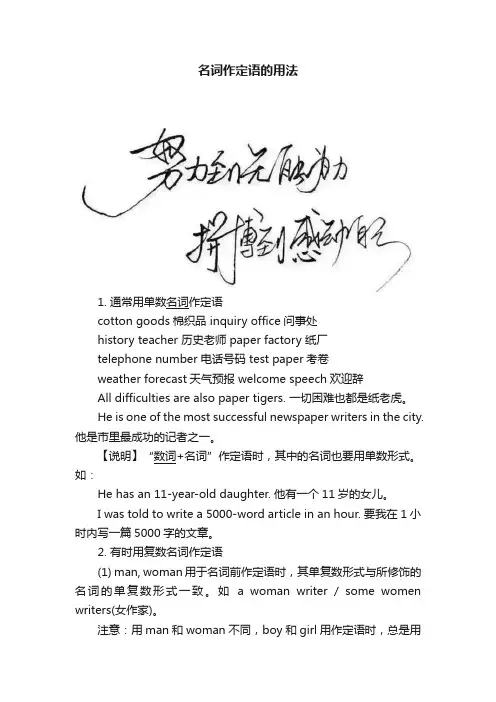 名词作定语的用法
努力到无能为力
拼搏到感动自己
1. 通常用单数名词作定语
cotton goods 棉织品 inquiry office 问事处
history teacher 历史老师 paper factory 纸厂
telephone number 电话号码 test paper 考卷
weather forecast 天气预报 welcome speech 欢迎辞
All difficulties are also paper tigers. 一切困难也都是纸老虎。
He is one of the most successful newspaper writers in the city.
他是市里最成功的记者之一。
【说明】“数词+名词”作定语时，其中的名词也要用单数形式。
如：
He has an 11-year-old daughter. 他有一个 11 岁的女儿。
I was told to write a 5000-word article in an hour. 要我在 1 小
时内写一篇 5000 字的文章。
2. 有时用复数名词作定语
(1) man, woman 用于名词前作定语时，其单复数形式与所修饰的
名词的单复数形式一致。如 a woman writer / some women
writers(女作家)。
注意：用 man 和 woman 不同，boy 和 girl 用作定语时，总是用